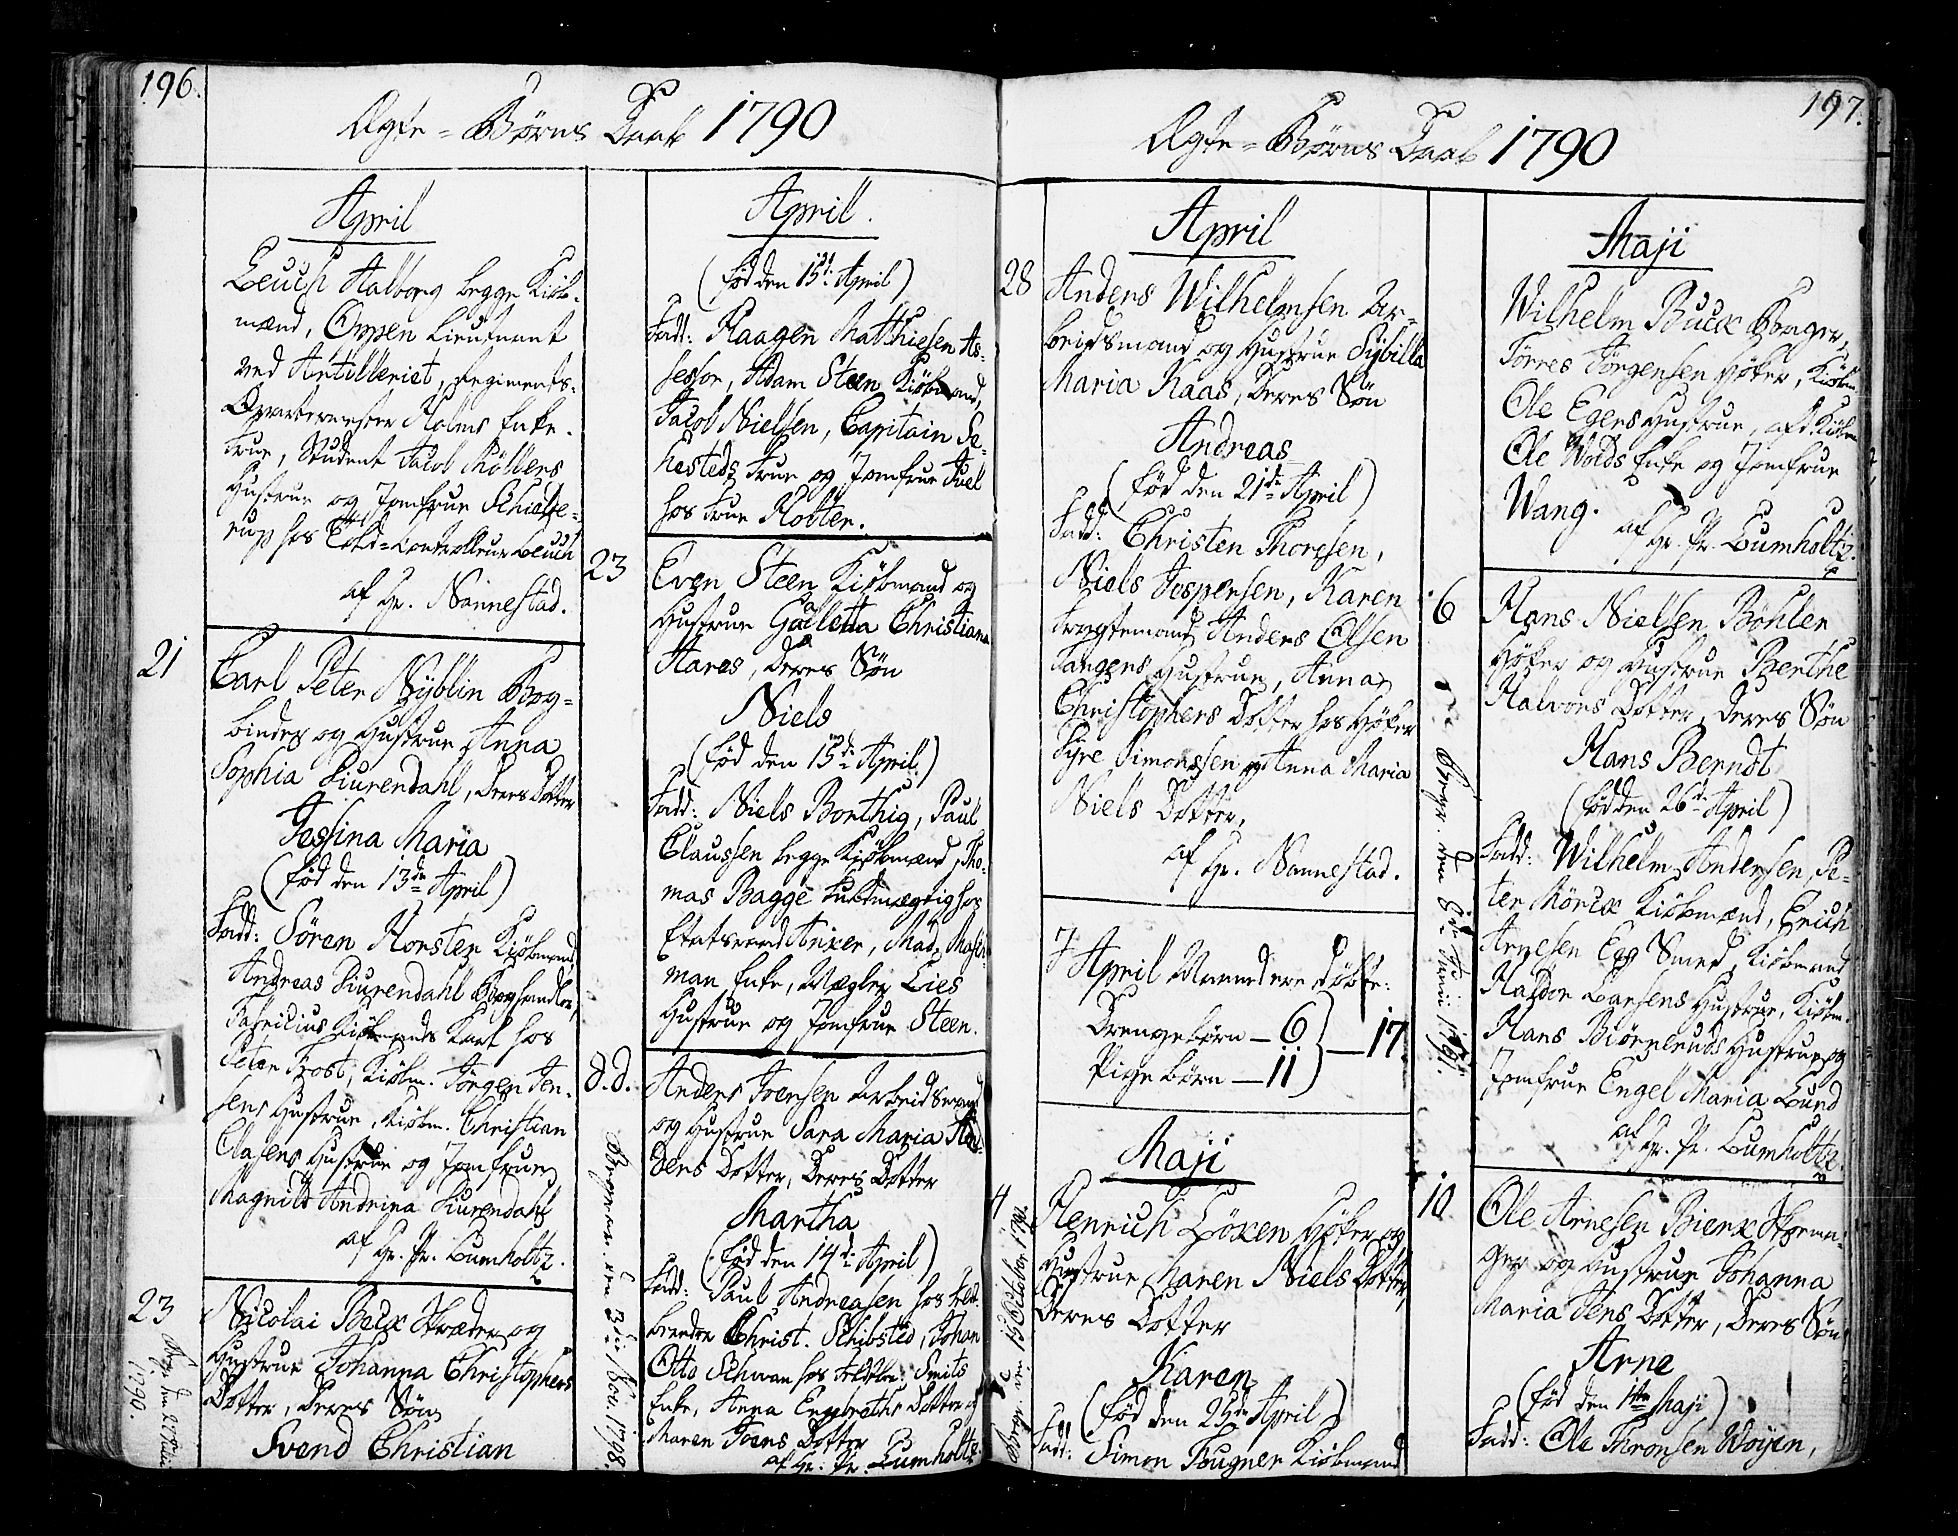 196.
Ægte = Børns Daab 1790
April
Leuch Aalborg begge Kiøb-
mænd, Oppen Lieutnant
ved Artilleriet, Regiments-
Qvarteermester Holms Enke-
Frue, Student Jacob Møllers
Hustrue og Jomfrue
hos Told-Controlleur Leuch
af Hr. Nannestad.
21
Carl Peter Nyblin Bog-
binder og Hustrue Anna
Sophia Diurendahl, Deres Dotter
Jessina Maria
(Fød den 13de April)
Fadd: Søren Horster Kiøbmand,
Andreas Diurendahl Boghandler,
Kiøbmands Karl hos
Peter Frost, Kiøbm. Jørgen Jen-
sens Hustrue, Kiøbm. Christian
Clasens Hustrue og Jomfrue
Magnild Andrina Diurendahl
af Hr. Pr. Lumholtz.
23
Nicolai Beck Skræder og
Hustrue Johanna Christophers
Dotter, Deres Søn
Svend Christian
1790.
April.
(Fød den 15de April)
Fadd: Haagen Matthiesen As-
sessor, Adam Steen Kiøbmand,
Jacob Nielsen, Capitain Se-
hesteds Frue og Jomfrue Juel
hos Frue Holter.
23
Even Steen Kiøbmand og
Hustrue Galletta Christiana
Hares, Deres Søn
Niels
(Fød den 15de April)
Fadd: Niels Borthig, Paul
Claussen begge Kiøbmænd, Tho-
mas Bagge Fuldmægtig hos
Etatsraad Anker, Mad.
man Enke, Mægler Lies
Hustrue og Jomfrue Steen.
d.d.
Anders Ivensen Arbeidsmand
og Hustrue Sara Maria An-
ders Dotter, Deres Dotter
Martha
(Fød den 14de April)
Fadd: Paul Andreasen hos
Christ. Schibsted, Johan
Otto Schwan hos Smits
Enke, Anna Engbreths Dotter og
Maren Ivens Dotter
af Hr. Pr. Lumholtz.
Begraven den 3die Nov. 1798.
197.
Ægte = Børns Daab 1790
April
28
Anders Wilhelmsen Ar-
beidsmand og Hustrue Sybilla
Maria Kaas, Deres Søn
Andreas
(Fød den 21de April)
Fadd: Christen Thoresen,
Niels Jespersen, Karen
Anders Olsen
Tangens Hustrue, Anna
Christophers Dotter hos Høker
Syre Simonssen og Anna Maria
Niels Dotter,
af Hr. Nannestad.
I April Maaned ere døbte:
Drengebørn — 6
Pigebørn — 11
} — 17.
Maji
4
Henrich Löken Høker og
Hustrue Maren Niels Dotter,
Deres Dotter
Karen
(Fød den April)
Fadd: Simon Fougner Kiøbmand
Maji
Wilhelm Buck Borger,
Torres Jörgensen Høker, Kiøbm.
Ole Egers Hustrue, afd. Kiøbm.
Ole Wolds Enke og Jomfrue
Wang.
af Hr. Pr. Lumholtz.
6
Hans Nielsen Böhler
Høker og Hustrue Berthe
Halvors Dotter, Deres Søn
Hans Berndt
(Fød den 26de April)
Fadd: Wilhelm Andersen, Pe-
ter Mörck Kiøbmænd, Erich
Arnesen Egg Smed, Kiøbmand
Haldor Larsens Hustrue, Kiøbm.
Hans Biørneruds Hustrue og
Jomfrue Engel Maria Lund
af Hr. Pr. Lumholtz.
10
Ole Arnesen Bienk Skoma-
ger og Hustrue Johanna
Maria Jens Dotter, Deres Søn
Arne
(Fød den 1ste Maji)
Fadd: Ole Thronsen Woyen,